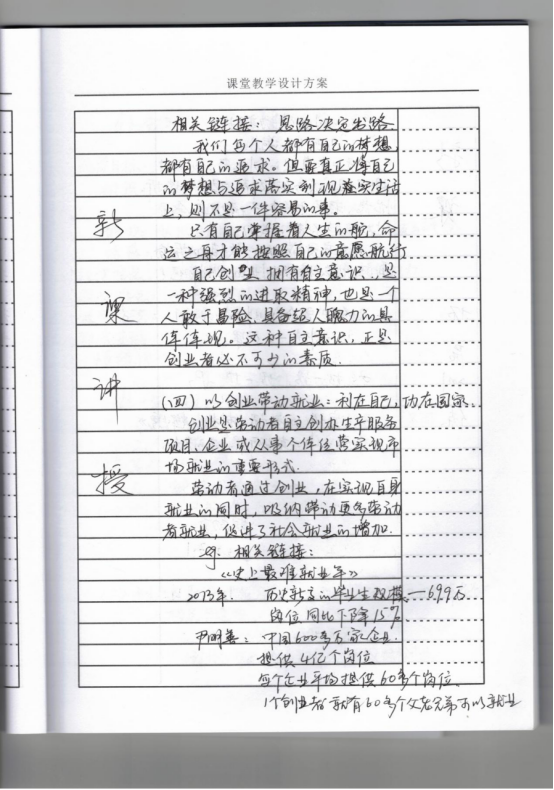 课堂教学设计方案
相关链接：思路决定出路
我们每个人都有自己的梦想
都有自己的追求。但要真正将自己
的梦想与追求落实到现实生活
上，则不是一件容易的事。
新
只有自己掌握着人生的舵，命
运之舟才能按照自己的意愿航行
自己创业，拥有自主意识，是
课
一种强烈的进取精神，也是一个
人敢于冒险、具备超人魄力的具
体体现。这种自主意识，正是
创业者必不可少的素质．
讲
(四) 以创业带动就业：利在自己，功在国家．
创业是劳动者自主创办生产服务
项目、企业或从事个体经营实现市
授
场就业的重要形式．
劳动者通过创业，在实现自身
就业的同时，吸纳带动更多劳动
者就业，促进了社会就业的增加．
相关链接：
《史上最难就业年》
2013年． 历史新高的毕业生规模—699万
岗位同比下降15%
尹明善：中国600多万家企业．
提供4亿个岗位
每个企业平均提供60多个岗位．
1个创业者就有60多个父老兄弟可以就业